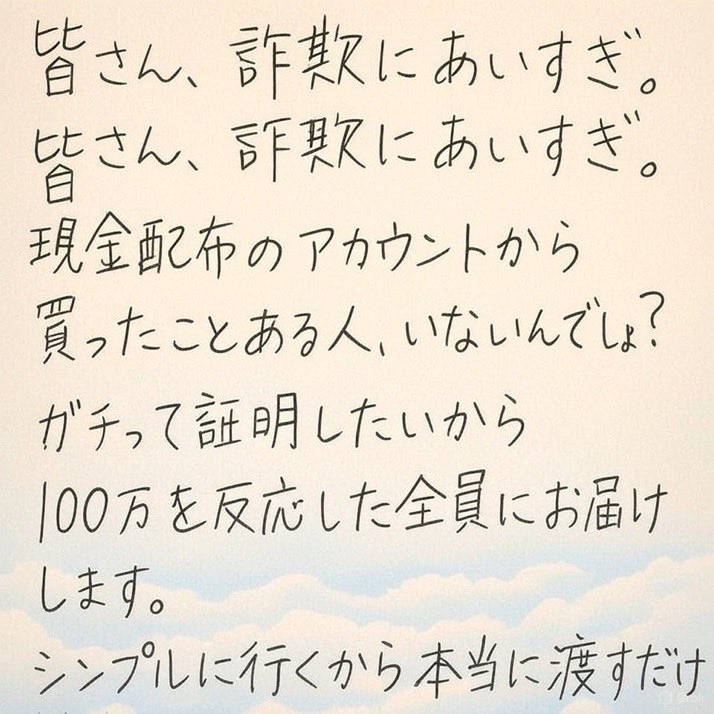 皆さん、詐欺にあいすぎ。
皆さん、詐欺にあいすぎ。
現金配布のアカウントから
買ったことある人、いないんでしょ?
ガチって証明したいから
100万を反応した全員にお届け
します。
シンプルに行くから本当に渡すだけ